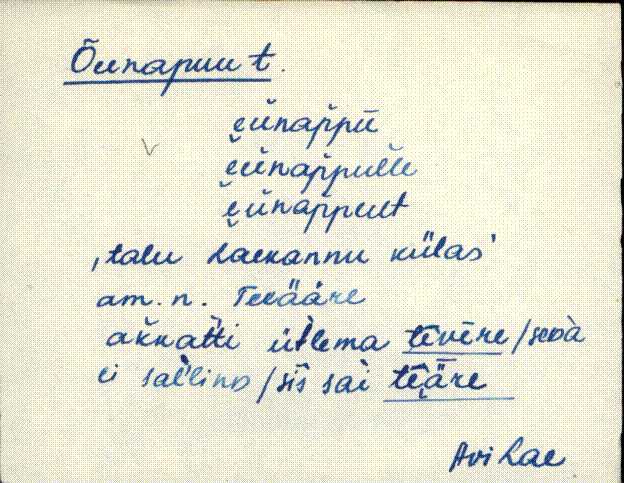 Õunapuu t.
e̮ùnăppū
e̮ùnăppulle
e̮ùnăppuut
‚talu Laekannu külas’
am. n. Teeääre
ak̆kat̆ti üt̀lema tēvēre / sedà
ei sal̆lind / sìs sai tēäre
Avi Lae